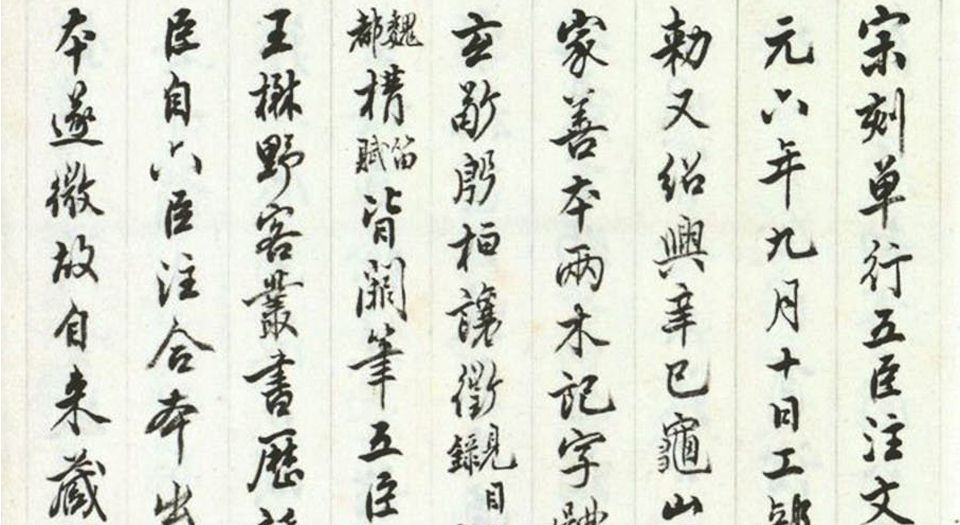 宋刻单行五臣注文
元六年九月十日工部
勅又紹興辛巳龜山
家善本兩木記字體
玄敬殷桓讓徵見目錄
魏都構笛賦皆闕筆五臣
王楙野客叢書歷
臣自六臣注合本出
本遂微故自来藏